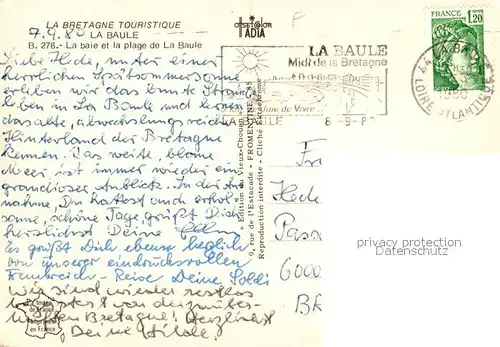 LA BRETAGNE TOURISTIQUE
LA BAULE
7.9.80
B. 276.- La baie et la plage de La Baule
COMBIER
IADIA
Liebe Hede, unter einer
herrlichen Spätsommersonne
erleben wir das bunte Strand-
leben in La Baule und lernen
das alte, abwechslungsreiche
Hinterland der Bretagne
kennen. Das weite, blaue
Meer ist immer wieder ein
grandioser Anblick. In der
nahme, Du hattest auch erhol-
same, schöne Tage, grüßt Dich
herzlichst Deine
Es grüßt Dich ebenso herzlich
von unserer eindrucksvollen
Frankreich-Reise Deine
Wir sind wieder restlos
begeistert von der zauber-
haften Bretagne! Herzlichst
Deine Hilde.
Image
de France
Imprimé
en France
Édition du Vieux-Chouan
9, rue de l'Estacade - FROMENTINE-85
Reproduction interdite - Cliché Estel
LA BAULE
Midi de la Bretagne
Joie de Vivre
LA BAULE
8-9-80
FRANCE
1,20
LA BAULE
LOIRE ATLANTIQUE
Fr
Hede
Pass
6000
privacy protection
Datenschutz